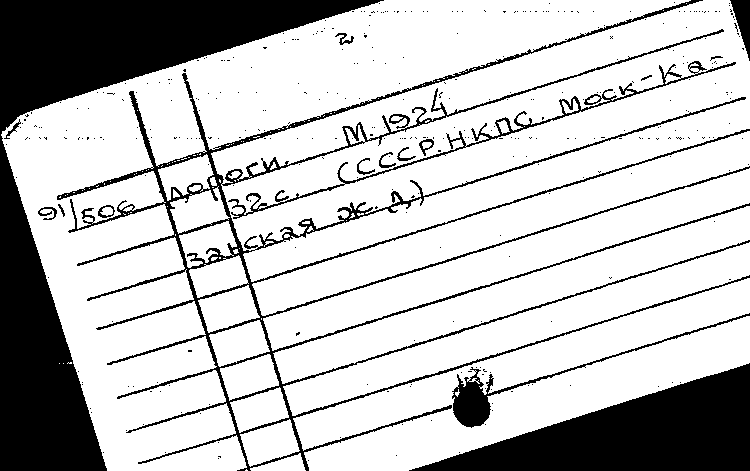 2.
91/506 дороги. М., 1924.
32 с. (СССР. НКПС. Моск-Ка-
занская ж. д.)